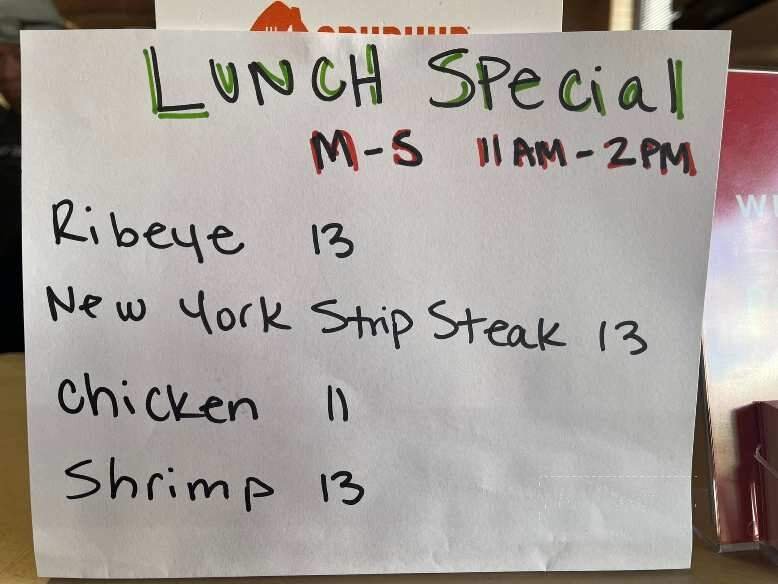 LUNCH Special
M-S 11AM-2PM
Ribeye 13
New York Strip Steak 13
Chicken 11
Shrimp 13